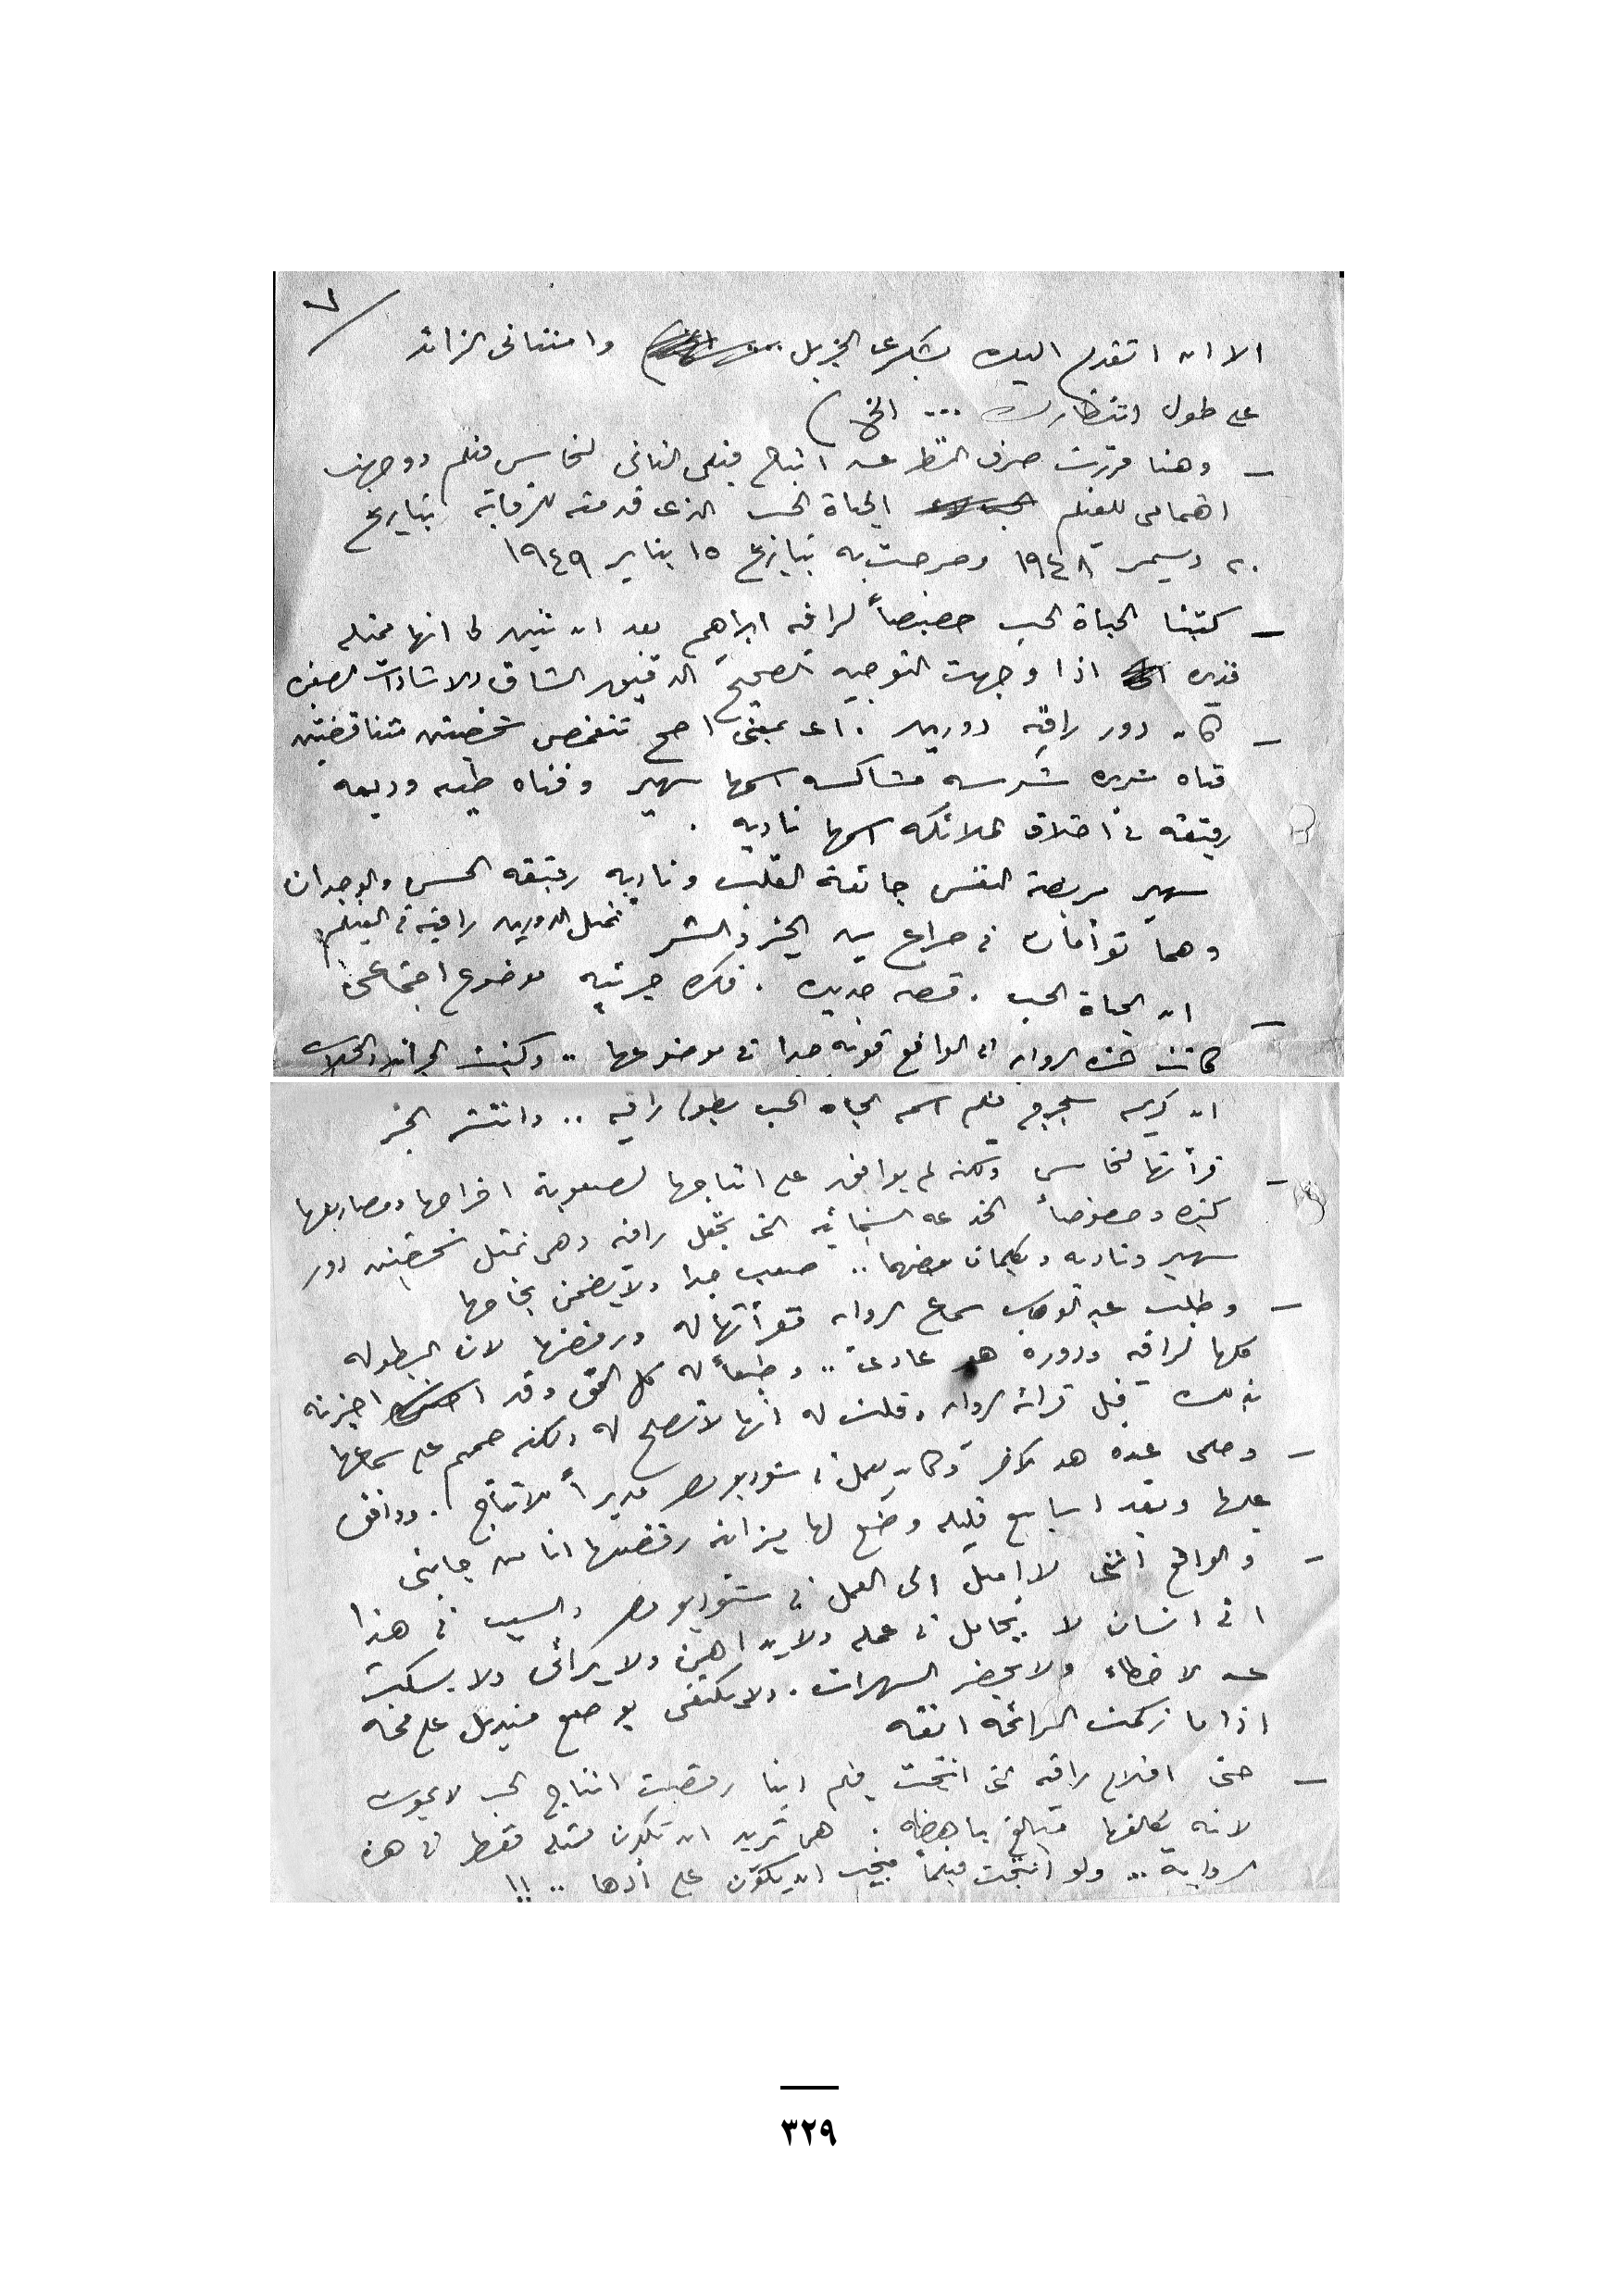 ٧
الا ان اتقدم اليك بشكرى الجزيل ... وامتنانى الزائد
على طول انتظارك ... الخ )
– وهنا قررت صرف النظر عن انتاج فيلمى الثانى لنحاس فيلم ووجهت
اهتمامى للفيلم الحياة الحب الذى قدمته للرقابة بتاريخ
٢٠ ديسمبر ١٩٤٨ وصرحت به بتاريخ ١٥ يناير ١٩٤٩
– كتبنا الحياة الحب خصيصاً لراقيه ابراهيم بعد ان تبين لى انها ممثله
قديره اذا وجهت التوجيه الصحيح الدقيق الشاق والاشادات الصغيره
– كان دور راقيه دورين . اى بمعنى اصح تتقمص شخصيتين متناقضتين
فتاه شريره شرسه مشاكسه اسمها سهير وفتاه طيبه وديعه
رقيقه فى أخلاق الملائكه اسمها ناديه .
سهير مريضة النفس جائعة القلب وناديه رقيقه الحس والوجدان
وهما توأمان فى صراع بين الخير والشر تمثل الدورين راقيه فى الفيلم
– ان الحياة الحب . قصه جديده . فكره جريئه موضوع اجتماعى
كانت هذه الروايه فى الواقع قويه جدا فى موضوعها .. وكتبت الجرائد والمجلات
ان كريم سيخرج فيلم اسمه الحياه الحب بطولة راقيه .. وانتشر الخبر
– قرأتها لنحاس ولكنه لم يوافق على انتاجها لصعوبة اخراجها ومصاريفها
كثيره وخصوصاً الخدعه السينمائيه التى تجعل راقيه وهى تمثل شخصيتين دور
سهير وناديه ويكلمان بعضهما .. صعب جدا ولا يضمن نجاحها
– وطلب عبد الوهاب سماع الروايه فقرأتها له ورفضها لان البطوله
كلها لراقيه ودوره هو عادى .. وطبعاً له كل الحق وقد اخبرته
بذلك قبل قرائة الروايه وقلت له انها لا تصلح له ولكنه صمم على سماعها
– وحلمى عبده هو الآخر وكان يعمل فى ستوديو مصر مديراً للانتاج . ووافق
عليها وبعد اسابيع قليله وضع لها ميزانيه رفضتها انا من جانبى
– والواقع أننى لا اميل الى العمل فى ستوديو مصر والسبب فى هذا
انى انسان لا يجامل فى عمله ولا يداهن ولا يرائى ولا يسكت
عن الاخطاء ولا يحضر السهرات . ولا يكتفى بوضع منديل على فمه
اذا ما زكمت الرائحه انفه
– حتى افلام راقيه التى انتجت فيلم ايضا رفضت انتاج الحب لا يموت
لانه يكلفها مبالغ باهظه . هى تريد ان تكون ممثله فقط فى هذه
الرواية .. ولو انتجت فيلماً فيجب ان يكون على أدها .. !!
٣٢٩